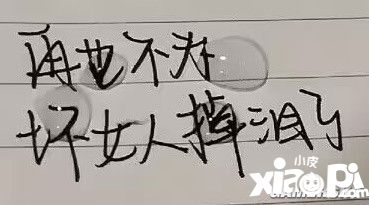 再也不为
坏女人掉泪了
小皮
xiaopi